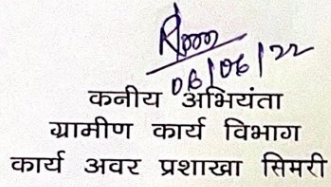 08/06/22
कनीय अभियंता
ग्रामीण कार्य विभाग
कार्य अवर प्रशाखा सिमरी